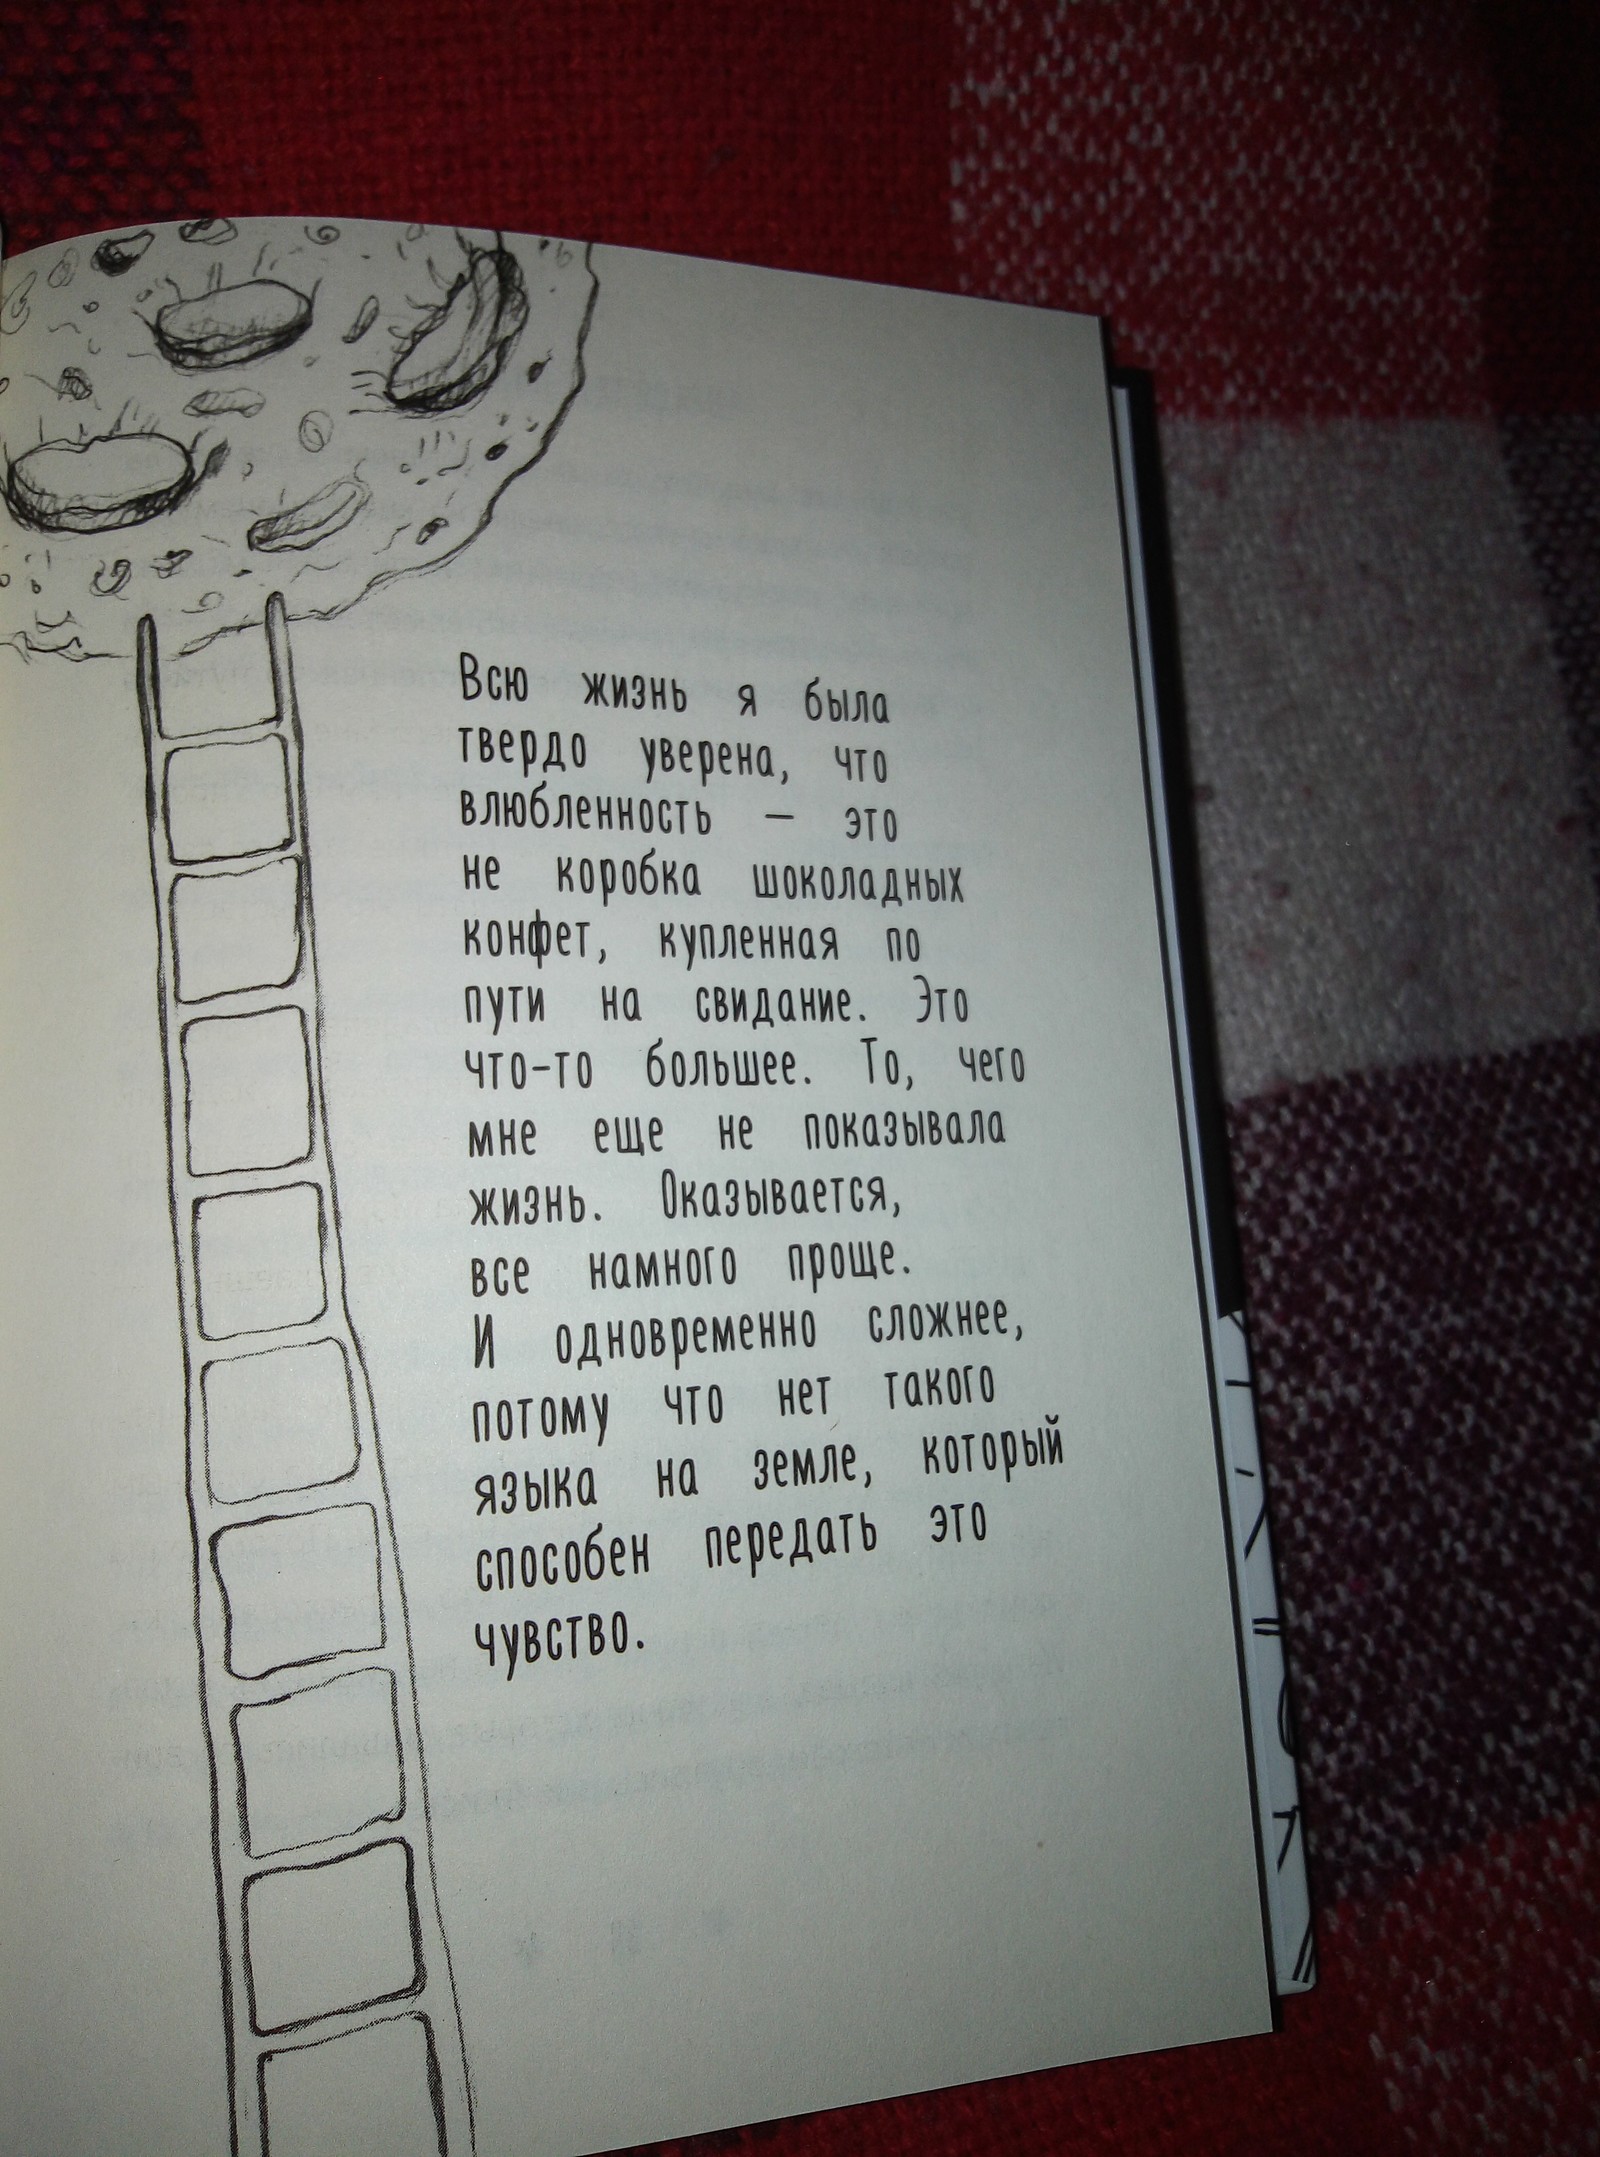 Всю жизнь я была
твердо уверена, что
влюбленность – это
не коробка шоколадных
конфет, купленная по
пути на свидание. Это
что-то большее. То, чего
мне еще не показывала
жизнь. Оказывается,
все намного проще.
И одновременно сложнее,
потому что нет такого
языка на земле, который
способен передать это
чувство.